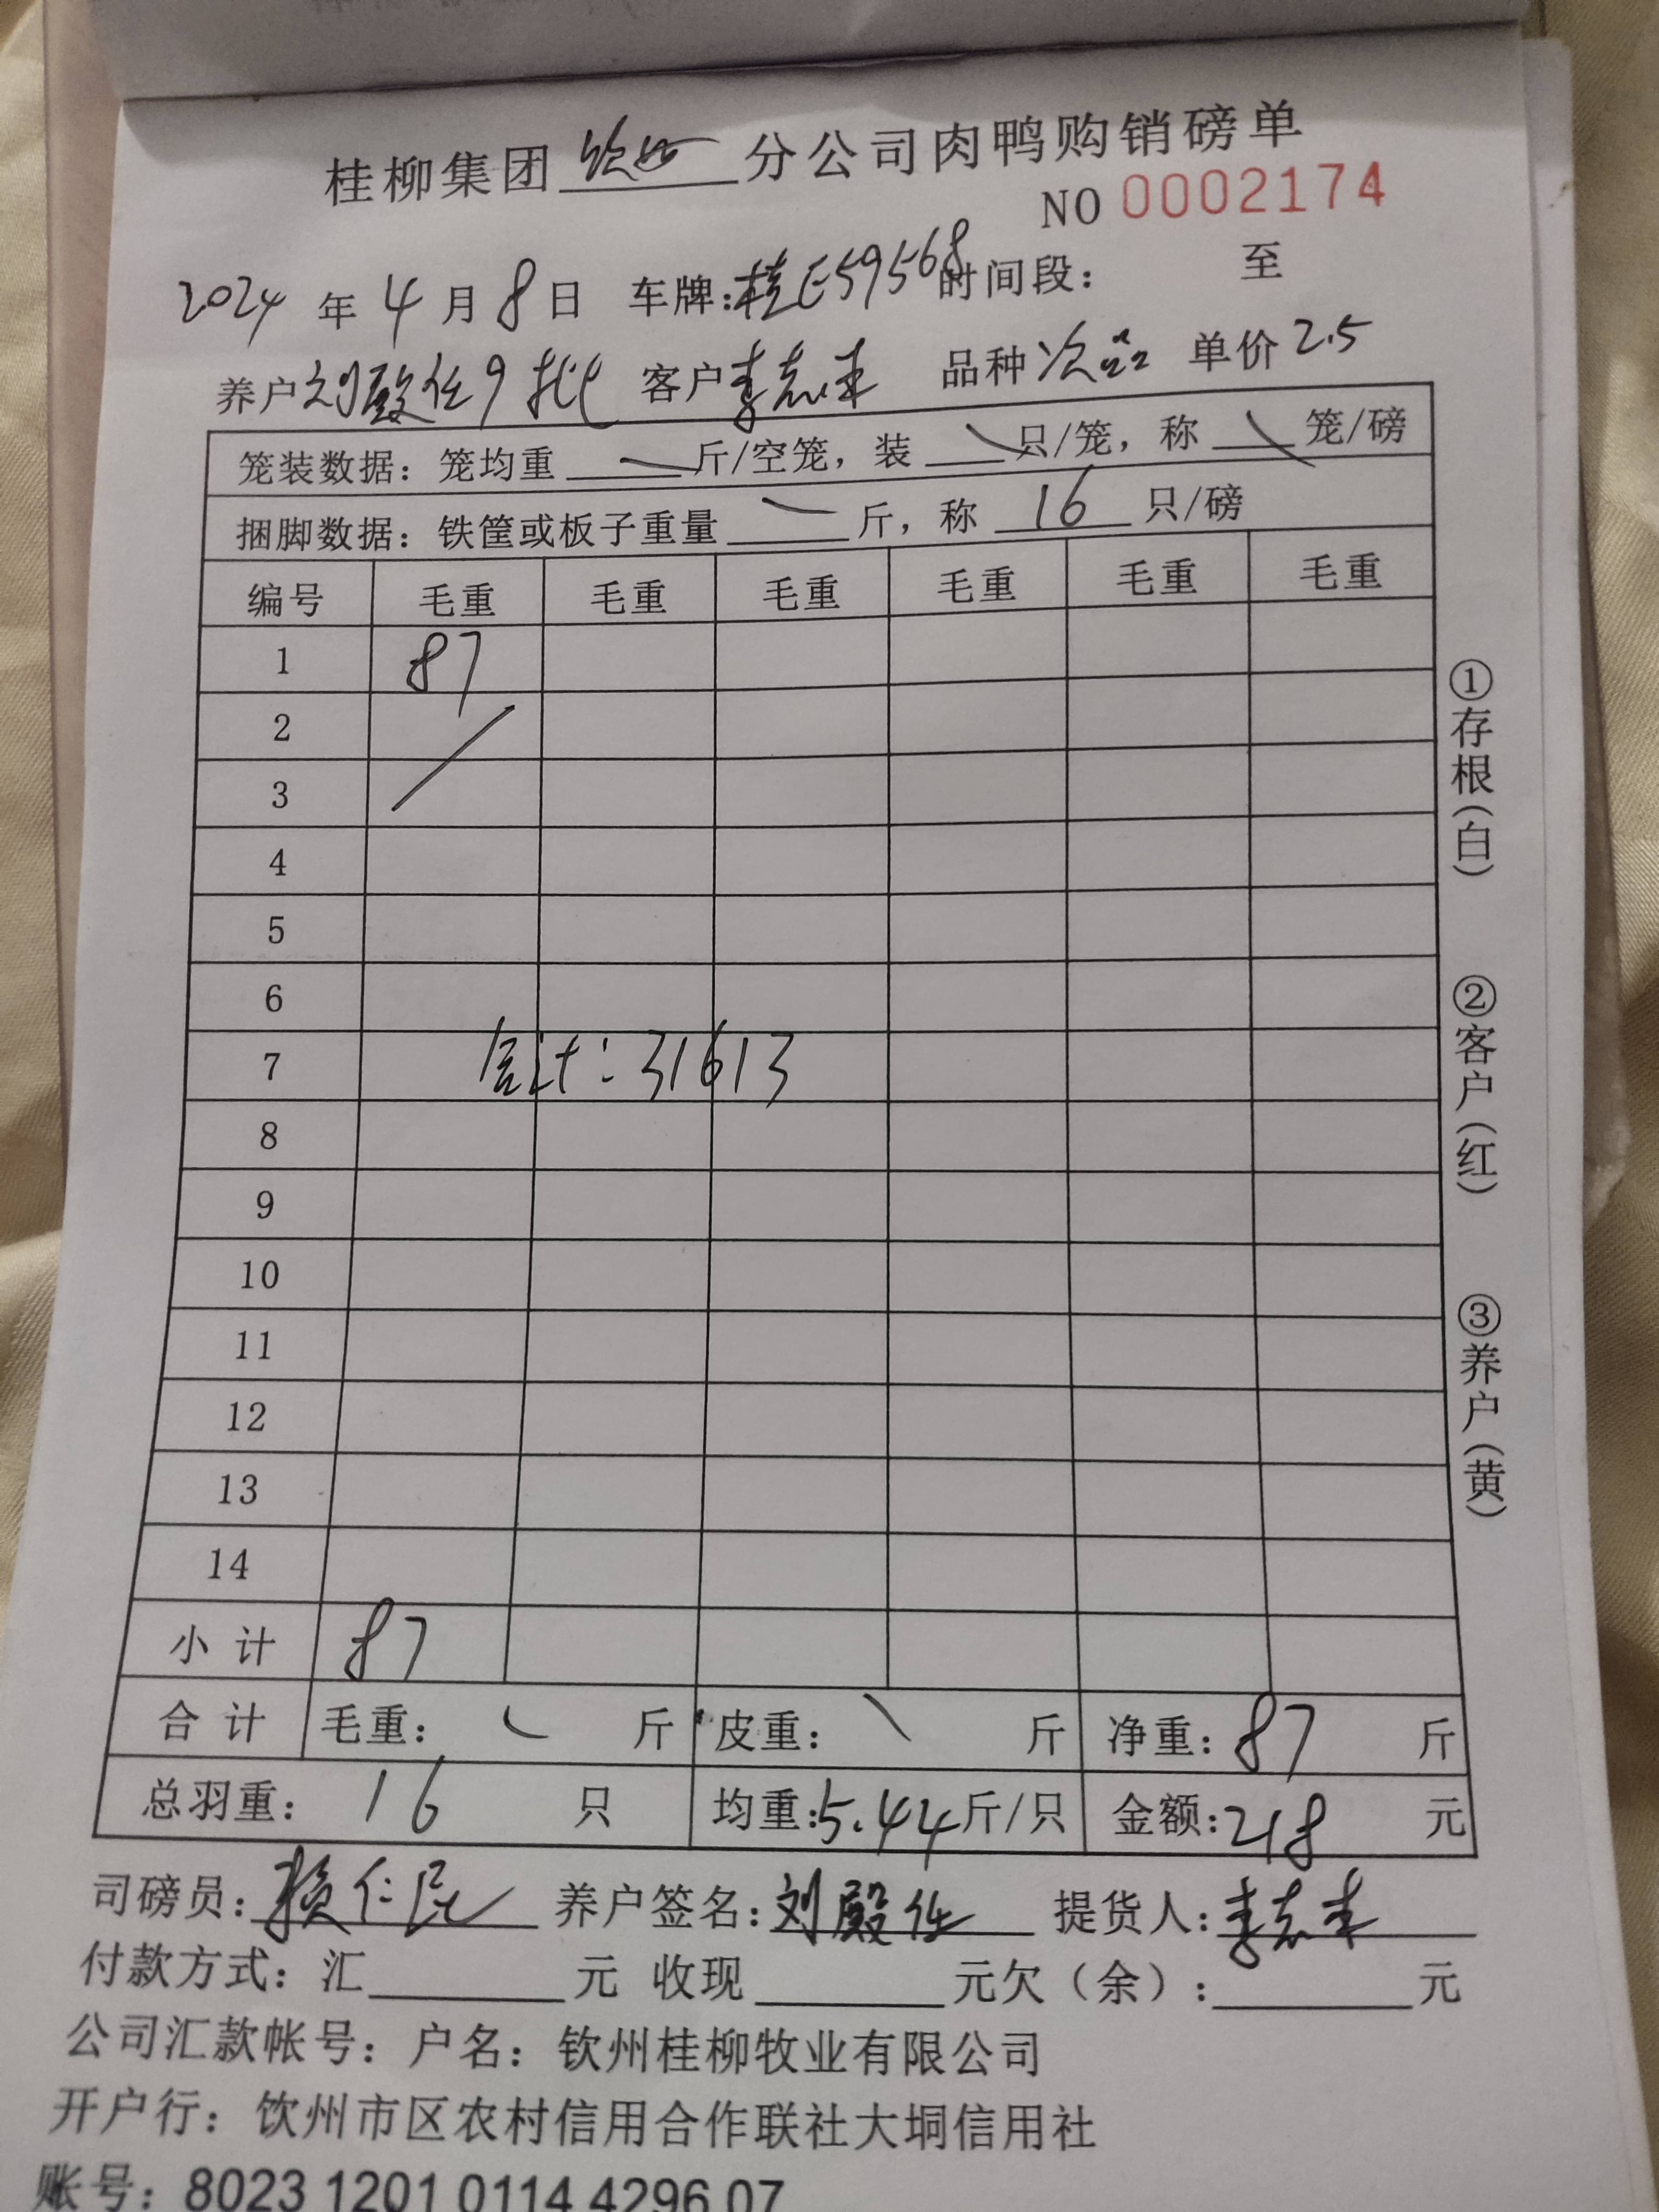 桂柳集团钦州分公司肉鸭购销磅单
NO 0002174
2024年4月8日 车牌:桂E59568 时间段: 至
养户刘殿任9批 客户李志丰 品种次品 单价2.5
笼装数据:笼均重 斤/空笼,装 只/笼,称 笼/磅
捆脚数据:铁筐或板子重量 斤,称 16 只/磅
编号 毛重 毛重 毛重 毛重 毛重 毛重
1 87
2
3
4
5
6
7 合计:31613
8
9
10
11
12
13
14
小计 87
合计 毛重: 斤 皮重: 斤 净重:87 斤
总羽重:16 只 均重:5.44斤/只 金额:218 元
司磅员:赖仁民 养户签名:刘殿任 提货人:李志丰
付款方式:汇 元 收现 元欠(余): 元
公司汇款帐号:户名:钦州桂柳牧业有限公司
开户行:饮州市区农村信用合作联社大垌信用社
账号:8023 1201 0114 4296 07
①存根(白)
②客户(红)
③养户(黄)